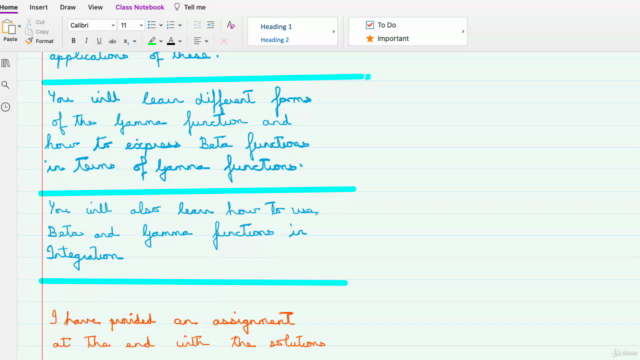 Home Insert Draw View Class Notebook Tell me
Paste Cut Copy Format Calibri 11 Heading 1 Heading 2 To Do Important
B I U
applications of these.
You will learn different forms
of the Gamma function and
how to express Beta functions
in terms of Gamma functions.
You will also learn how to use
Beta and Gamma functions in
Integration
I have povided an assignment
at the end with the solutions